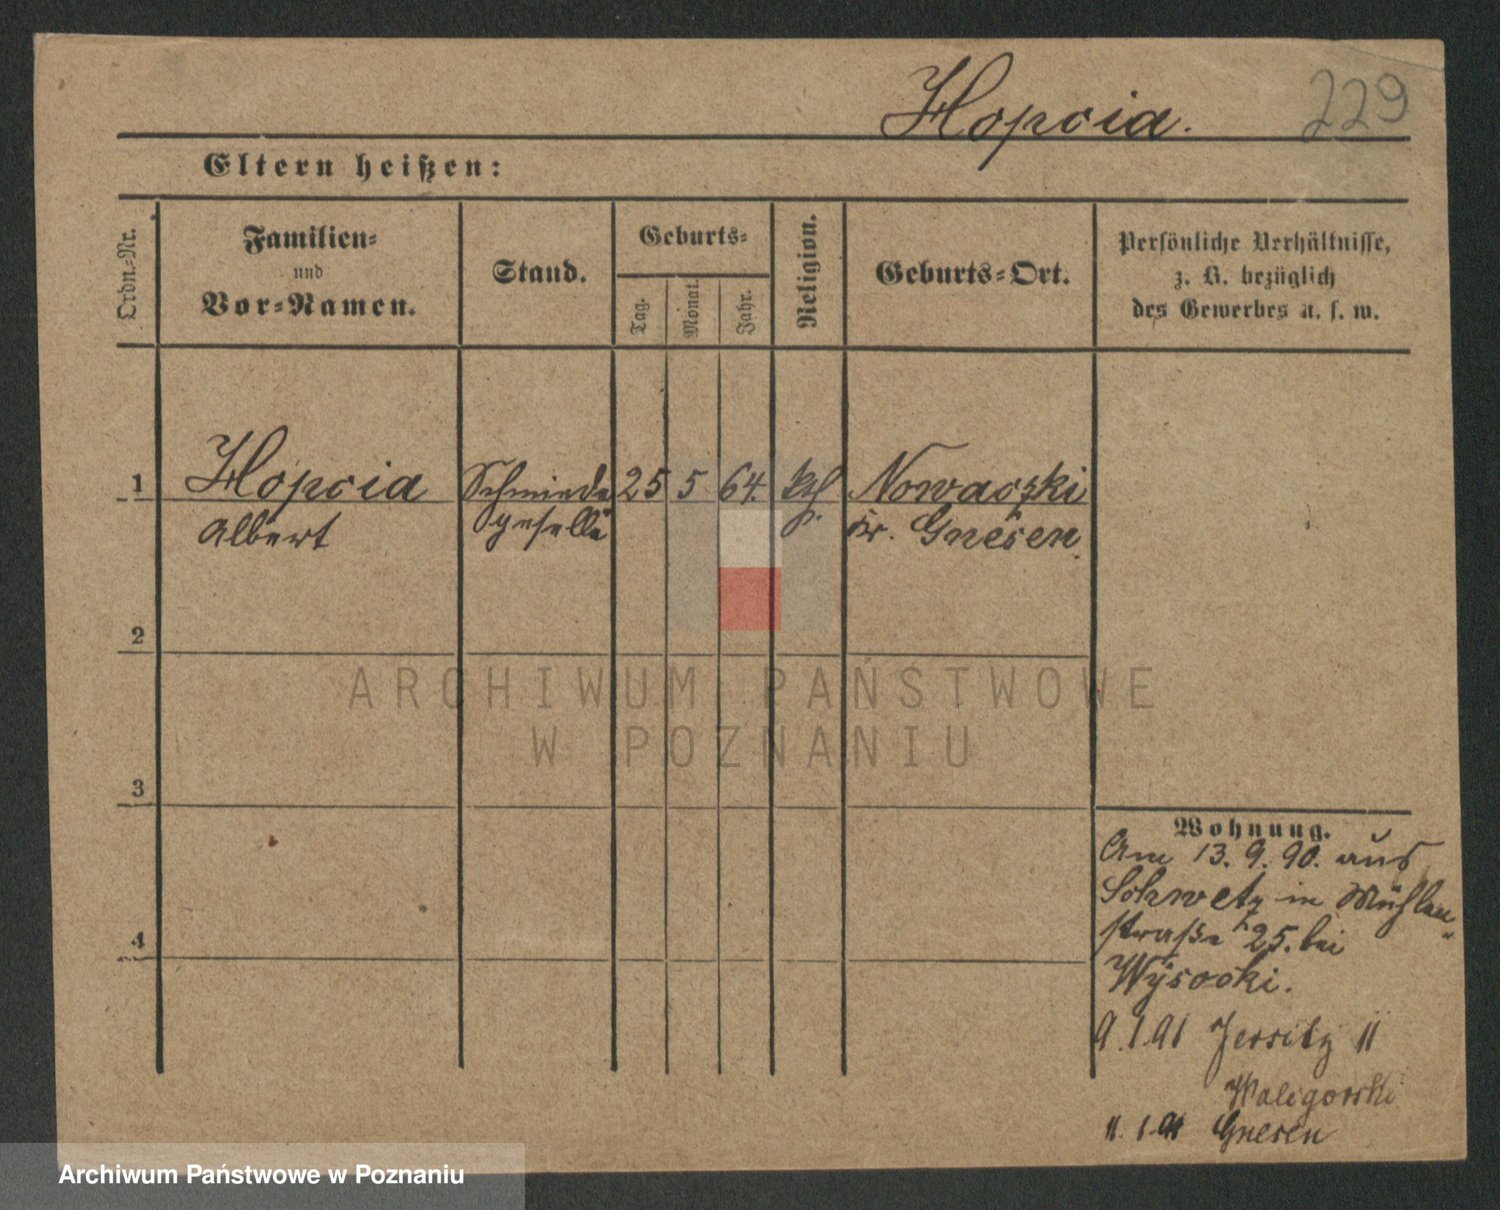 Hopcia. 229
Eltern heißen:
Ordn.-Nr.
Familien-
und
Vor-Namen.
Stand.
Geburts-
Tag.
Monat.
Jahr.
Religion.
Geburts-Ort.
Persönliche Verhältnisse,
z. B. bezüglich
des Gewerbes u. s. w.
1 Hopcia Schmiede 25 5 64. kth. Nowaczki
Albert geselle kr. Gnesen.
2
3
4
Wohnung.
Am 13. 9. 90. aus
Schwetz in Mühlen
straße 25. bei
Wysocki.
9.1.91 Jersitz 11
Waligorski
11. 1.91 Gnesen
ARCHIWUM PAŃSTWOWE
W POZNANIU
Archiwum Państwowe w Poznaniu